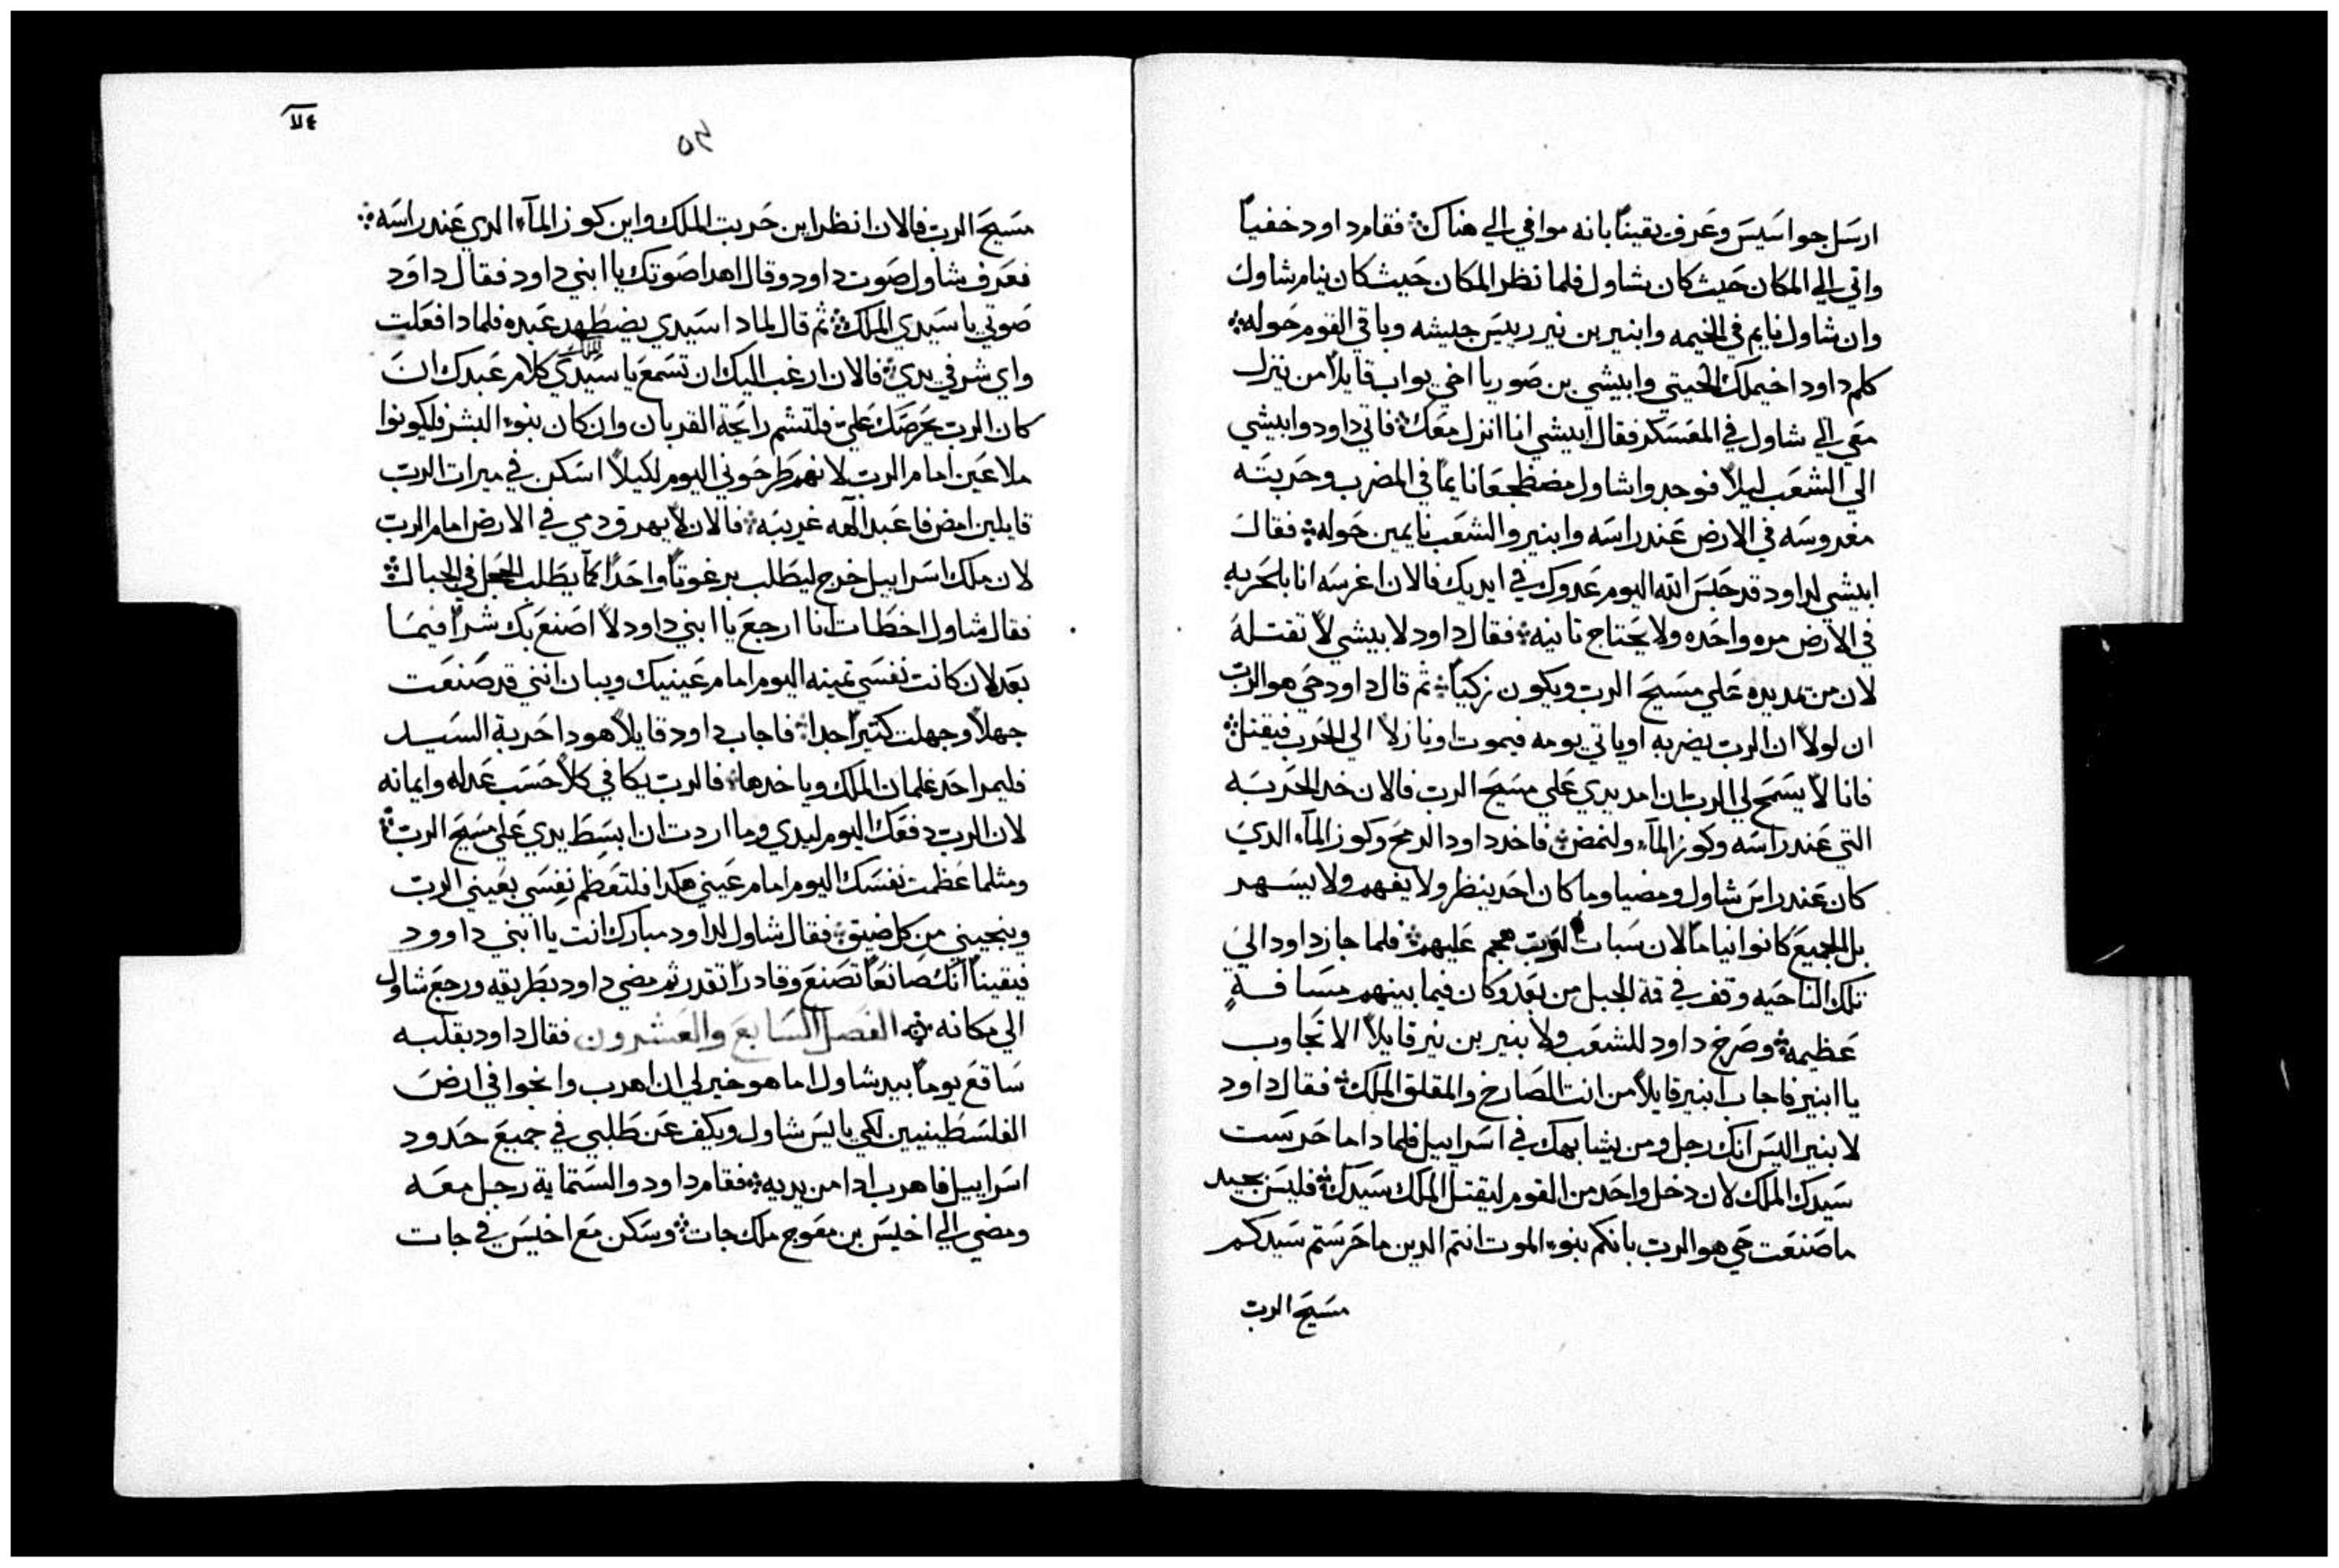 ارسَل جواسَيسَ وعَرف يقيناً بانه موافي الي هناك ܀ فقام داود خفياً
واتي الي المكان حَيث كان شاول فلما نظر المكان حَيث كان ينام شاول
وان شاول نايم في الخيمه وابنير بن نير رييسَ جيشه وباقي القوم حَوله ܀
كلم داود اخيملك الحيتي وابيشي بن صَوريا اخي يواب قايلاً من ينزل
معَي الي شاول في المعَسَكر فقال ابيشي انا انزل معَك ܀ فاتي داود وابيشي
الي الشعَب ليلاً فوجدوا شاول مضطجعَا نايماً في المضرب وحَربتَه
مغروسَه في الارض عَند راسَه وابنير والشعَب نايمين حَوله ܀ فقال
ابيشي لداود قد حَبسَ الله اليوم عَدوك في ايديك فالان اغرسَه انا بالحَربه
في الارض مره واحَده ولا يحَتاج تانيه ܀ فقال داود لابيشي لا تقتله
لان من يمد يده عَلي مسَيحَ الرب ويكون زكياً ܀ ثم قال داود حَي هو الرب
ان لولا ان الرب يضربه او ياتي يومه فيموت او نازلاً الي الحَرب فيقتل ܀
فانا لا يسَمحَ لي الرب ان امد يدي عَلي مسَيحَ الرب فالان خد الحَربه
التي عَند راسَه وكوز المآء ولنمض ܀ فاخد داود الرمحَ وكوز المآء الدي
كان عَند راسَ شاول ومضيا وما كان احَد ينظر ولا يفهم ولا يسَهر
بل الجميعَ كانوا نياماً لان سَبات الرب هجم عَليهم ܀ فلما جاز داود الي
تلك الناحَيه وقف في قمة الجبل من بعَد وكان فيما بينهم مسَافة
عَظيمه ܀ وصَرخ داود للشعَب ولابنير بن نير قايلاً الا تجَاوب
يا ابنير فاجاب ابنير قايلاً من انت الصَارخ والمقلق الملك ܀ فقال داود
لابنير اليسَ انك رجل ومن يشابهك في اسَراييل فلماداما حَرسَت
سَيدك الملك لان دخل واحَد من القوم ليقتل الملك سَيدك ܀ فليسَ بجيد
ما صَنعَت حَي هو الرب بانكم بنوء الموت انتم الدين ما حَرسَتم سَيدكم
مسَيحَ الرب
٧٤
٥٣
مسَيحَ الرب فالان انظر اين حَربت الملك واين كوز المآء الدي عَند راسَه ܀
فعَرف شاول صَوت داود وقال اهدا صَوتك يا ابني داود فقال داوَد
صَوتي يا سَيدي الملك ܀ ثم قال لمادا سَيدي يضطهد عَبده فلمادا فعَلت
واي شر في يدي ܀ فالان ارغب اليك ان تسَمعَ يا سَيدي الملك كلام عَبدك ان
كان الرب يحَرضَك عَلي فلتشم رايحَة القربان وان كان بنوء البشر فليكونوا
ملاعَين امام الرب لانهم طرحَوني اليوم لكيلا اسَكن في ميرات الرب
قايلين امض فاعَبد الهه غريبَه ܀ فالان لا يهرق دمي في الارض امام الرب
لان ملك اسَراييل خرج ليطَلب برغوتاً واحَداً كما يطَلب الحَجل في الجبال ܀
فقال شاول اخطَات انا ارجعَ يا ابني داود لا اصَنعَ بك شراً فيمَا
بعَد لان كانت نفسَي تمينه اليوم امام عَينيك ويبان انني قد صَنعَت
جهلاً وجهلت كتيراً جدا ܀ فاجاب داود قايلاً هودا حَربة السَيد
فليمر احَد غلمان الملك وياخدها ܀ فالرب يكافي كلاً حَسَب عَدله وايمانه
لان الرب دفعَك اليوم ليدي وما اردت ان ابسَطَ يدي عَلي مسَيحَ الرب ܀
ومثلما عَظمت نفسَك اليوم امام عَيني هكدا فلتعَظم نفسَي بعَيني الرب
وينجيني من كل ضيق ܀ فقال شاول لداود مبارك انت يا ابني داوود
فيقيناً انك صَانعَاً تصَنعَ وقادراً تقدر ثم مضي داود بطَريقه ورجعَ شاول
الي مكانه ܀ الفصَل السَابعَ والعَشرون فقال داود بقلبه
سَاقعَ يوماً بيد شاول اما هو خير لي ان اهرب وانجوا في ارضَ
الفلسَطينيين لكي يايسَ شاول ويكف عَن طَلبي في جميعَ حَدود
اسَراييل فاهرب ادا من يديه ܀ فقام داود والسَتماية رجل معَه
ومضي الي اخيسَ بن معَوج ملك جات ܀ وسَكن معَ اخيسَ في جات